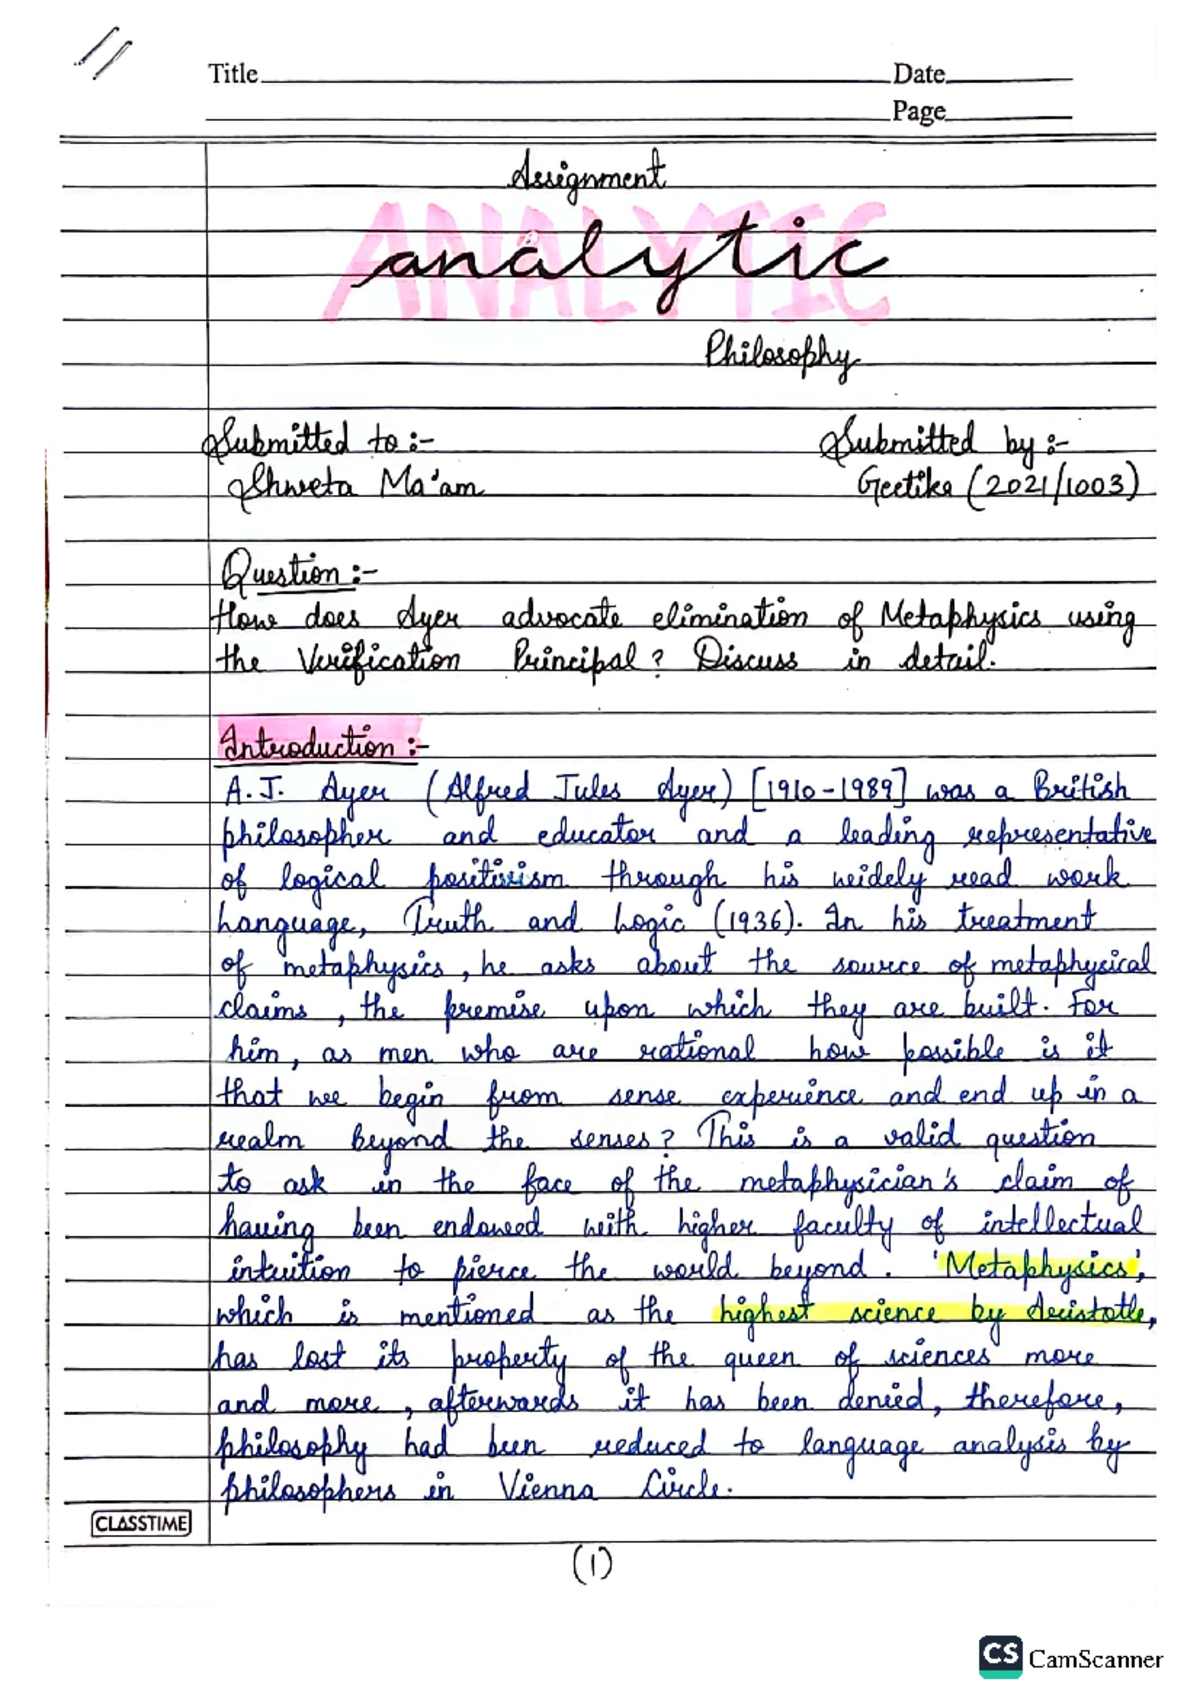 Title Date
Page
Assignment
ANALYTIC
analytic
Philosophy
Submitted to :- Submitted by :-
Shweta Ma'am Geetika (2021/1003)
Question :-
How does Ayer advocate elimination of Metaphysics using
the Verification Principal? Discuss in detail.
Introduction :-
A.J. Ayer (Alfred Jules Ayer) [1910-1989] was a British
philosopher and educator and a leading representative
of logical positivism through his widely read work
Language, Truth and Logic (1936). In his treatment
of metaphysics, he asks about the source of metaphysical
claims, the premise upon which they are built. For
him, as men who are rational how possible is it
that we begin from sense experience and end up in a
realm beyond the senses? This is a valid question
to ask in the face of the metaphysician's claim of
having been endowed with higher faculty of intellectual
intuition to pierce the world beyond. 'Metaphysics',
which is mentioned as the highest science by Aristotle,
has lost its property of the queen of sciences more
and more, afterwards it has been denied, therefore,
philosophy had been reduced to language analysis by
philosophers in Vienna Circle.
CLASSTIME
(1)
CS CamScanner